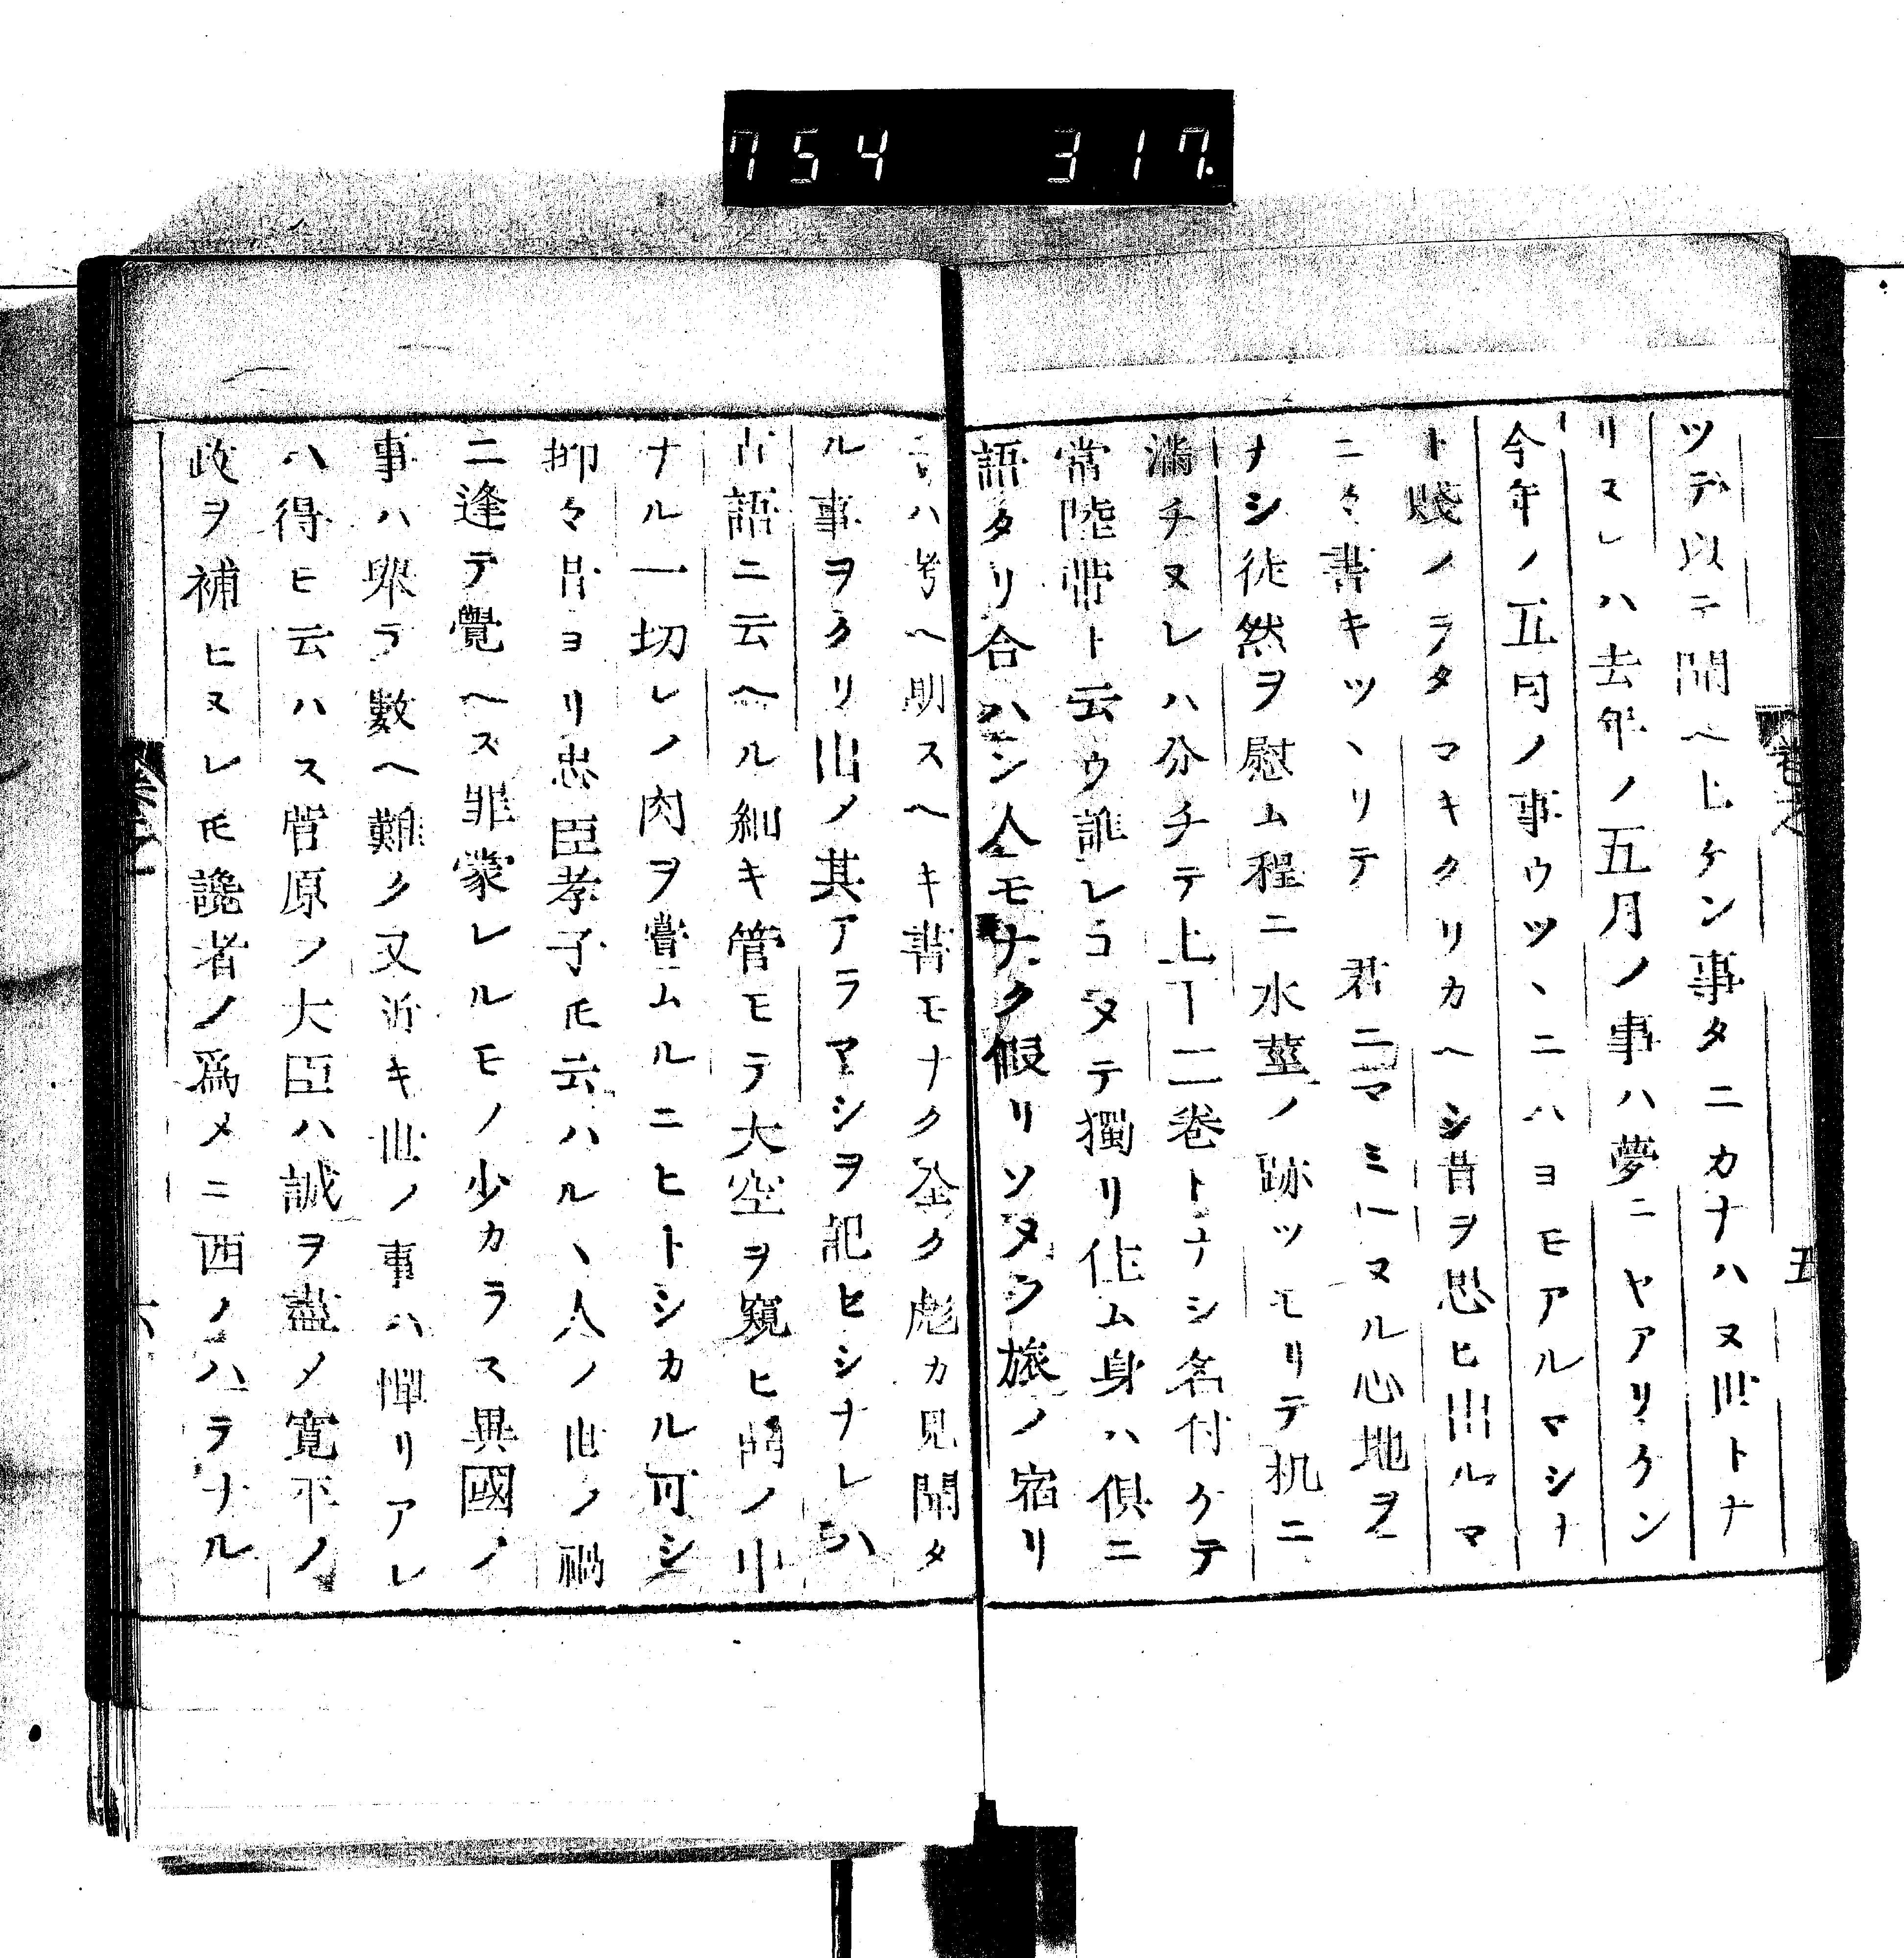 754 317.
五
ツテ以テ聞ヘ上ケン事タニカナハヌ世トナ
リヌレハ去年ノ五月ノ事ハ夢ニヤアリケン
今年ノ五月ノ事ウツヽニハヨモアルマシナ
ト賤ノヲタマキクリカヘシ昔ヲ思ヒ出ルマ
ニ々書キツヽリテ 君ニマミヘヌル心地ヲ
ナシ徒然ヲ慰ム程ニ水莖ノ跡ツモリテ机ニ
滿チヌレハ分チテ上下二卷トナシ名付ケテ
常陸帶ト云ウ誰レコヌテ獨リ住ム身ハ倶ニ
語タリ合ハン人モナク假リソタシ旅ノ宿リ
ニハ考ヘ明スヘキ書モナク全ク彪カ見聞タ
ル事ヲクリ出ノ其アラマシヲ記ヒシナレハ
古語ニ云ヘル細キ管モテ大空ヲ窺ヒ鬥ノ小
ナル一切レノ肉ヲ甞ムルニヒトシカル可シ
抑々昔ヨリ忠臣孝子モ云ハルヽ人ノ世ノ禍
ニ逢テ覺ヘス罪蒙レルモノ少カラス異國ノ
事ハ擧ラ數ヘ難ク又近キ世ノ事ハ憚リアレ
ハ得ヒ云ハス菅原ノ大臣ハ誠ヲ盡メ寛平ノ
政ヲ補ヒヌレモ讒者ノ爲メニ西ノハラナル
六